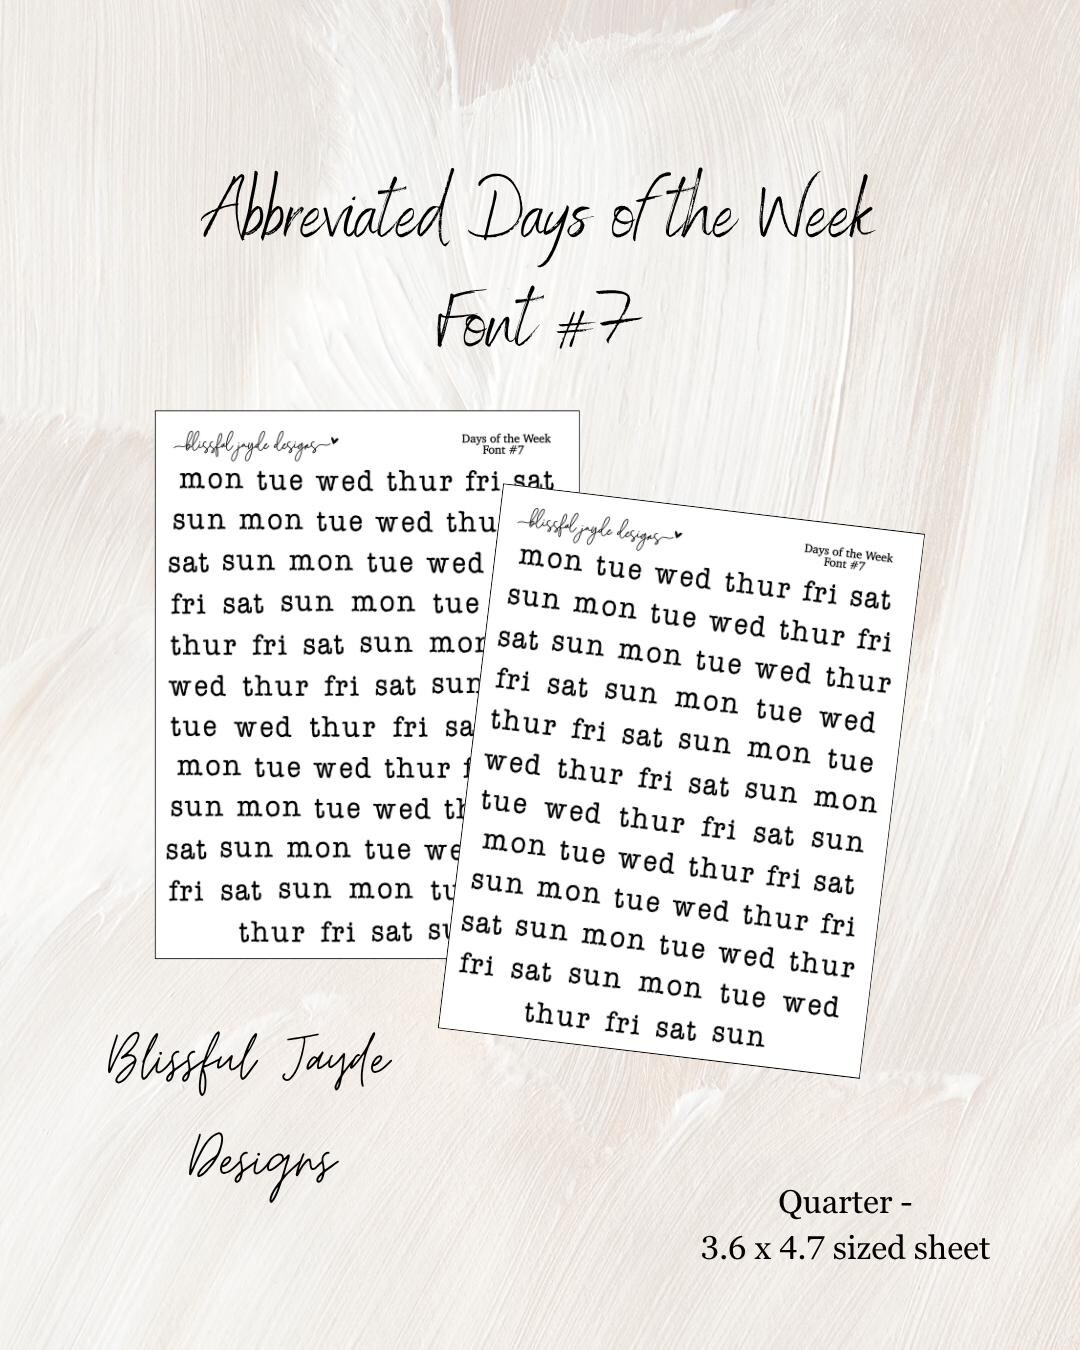 Abbreviated Days of the Week
Font #7
blissful jayde designs
Days of the Week
Font #7
mon tue wed thur fri sat
sun mon tue wed thu
sat sun mon tue wed
fri sat sun mon tue
thur fri sat sun mon
wed thur fri sat sun
tue wed thur fri sa
mon tue wed thur f
sun mon tue wed th
sat sun mon tue we
fri sat sun mon tu
thur fri sat su
blissful jayde designs
Days of the Week
Font #7
mon tue wed thur fri sat
sun mon tue wed thur fri
sat sun mon tue wed thur
fri sat sun mon tue wed
thur fri sat sun mon tue
wed thur fri sat sun mon
tue wed thur fri sat sun
mon tue wed thur fri sat
sun mon tue wed thur fri
sat sun mon tue wed thur
fri sat sun mon tue wed
thur fri sat sun
Blissful Jayde
Designs
Quarter -
3.6 x 4.7 sized sheet